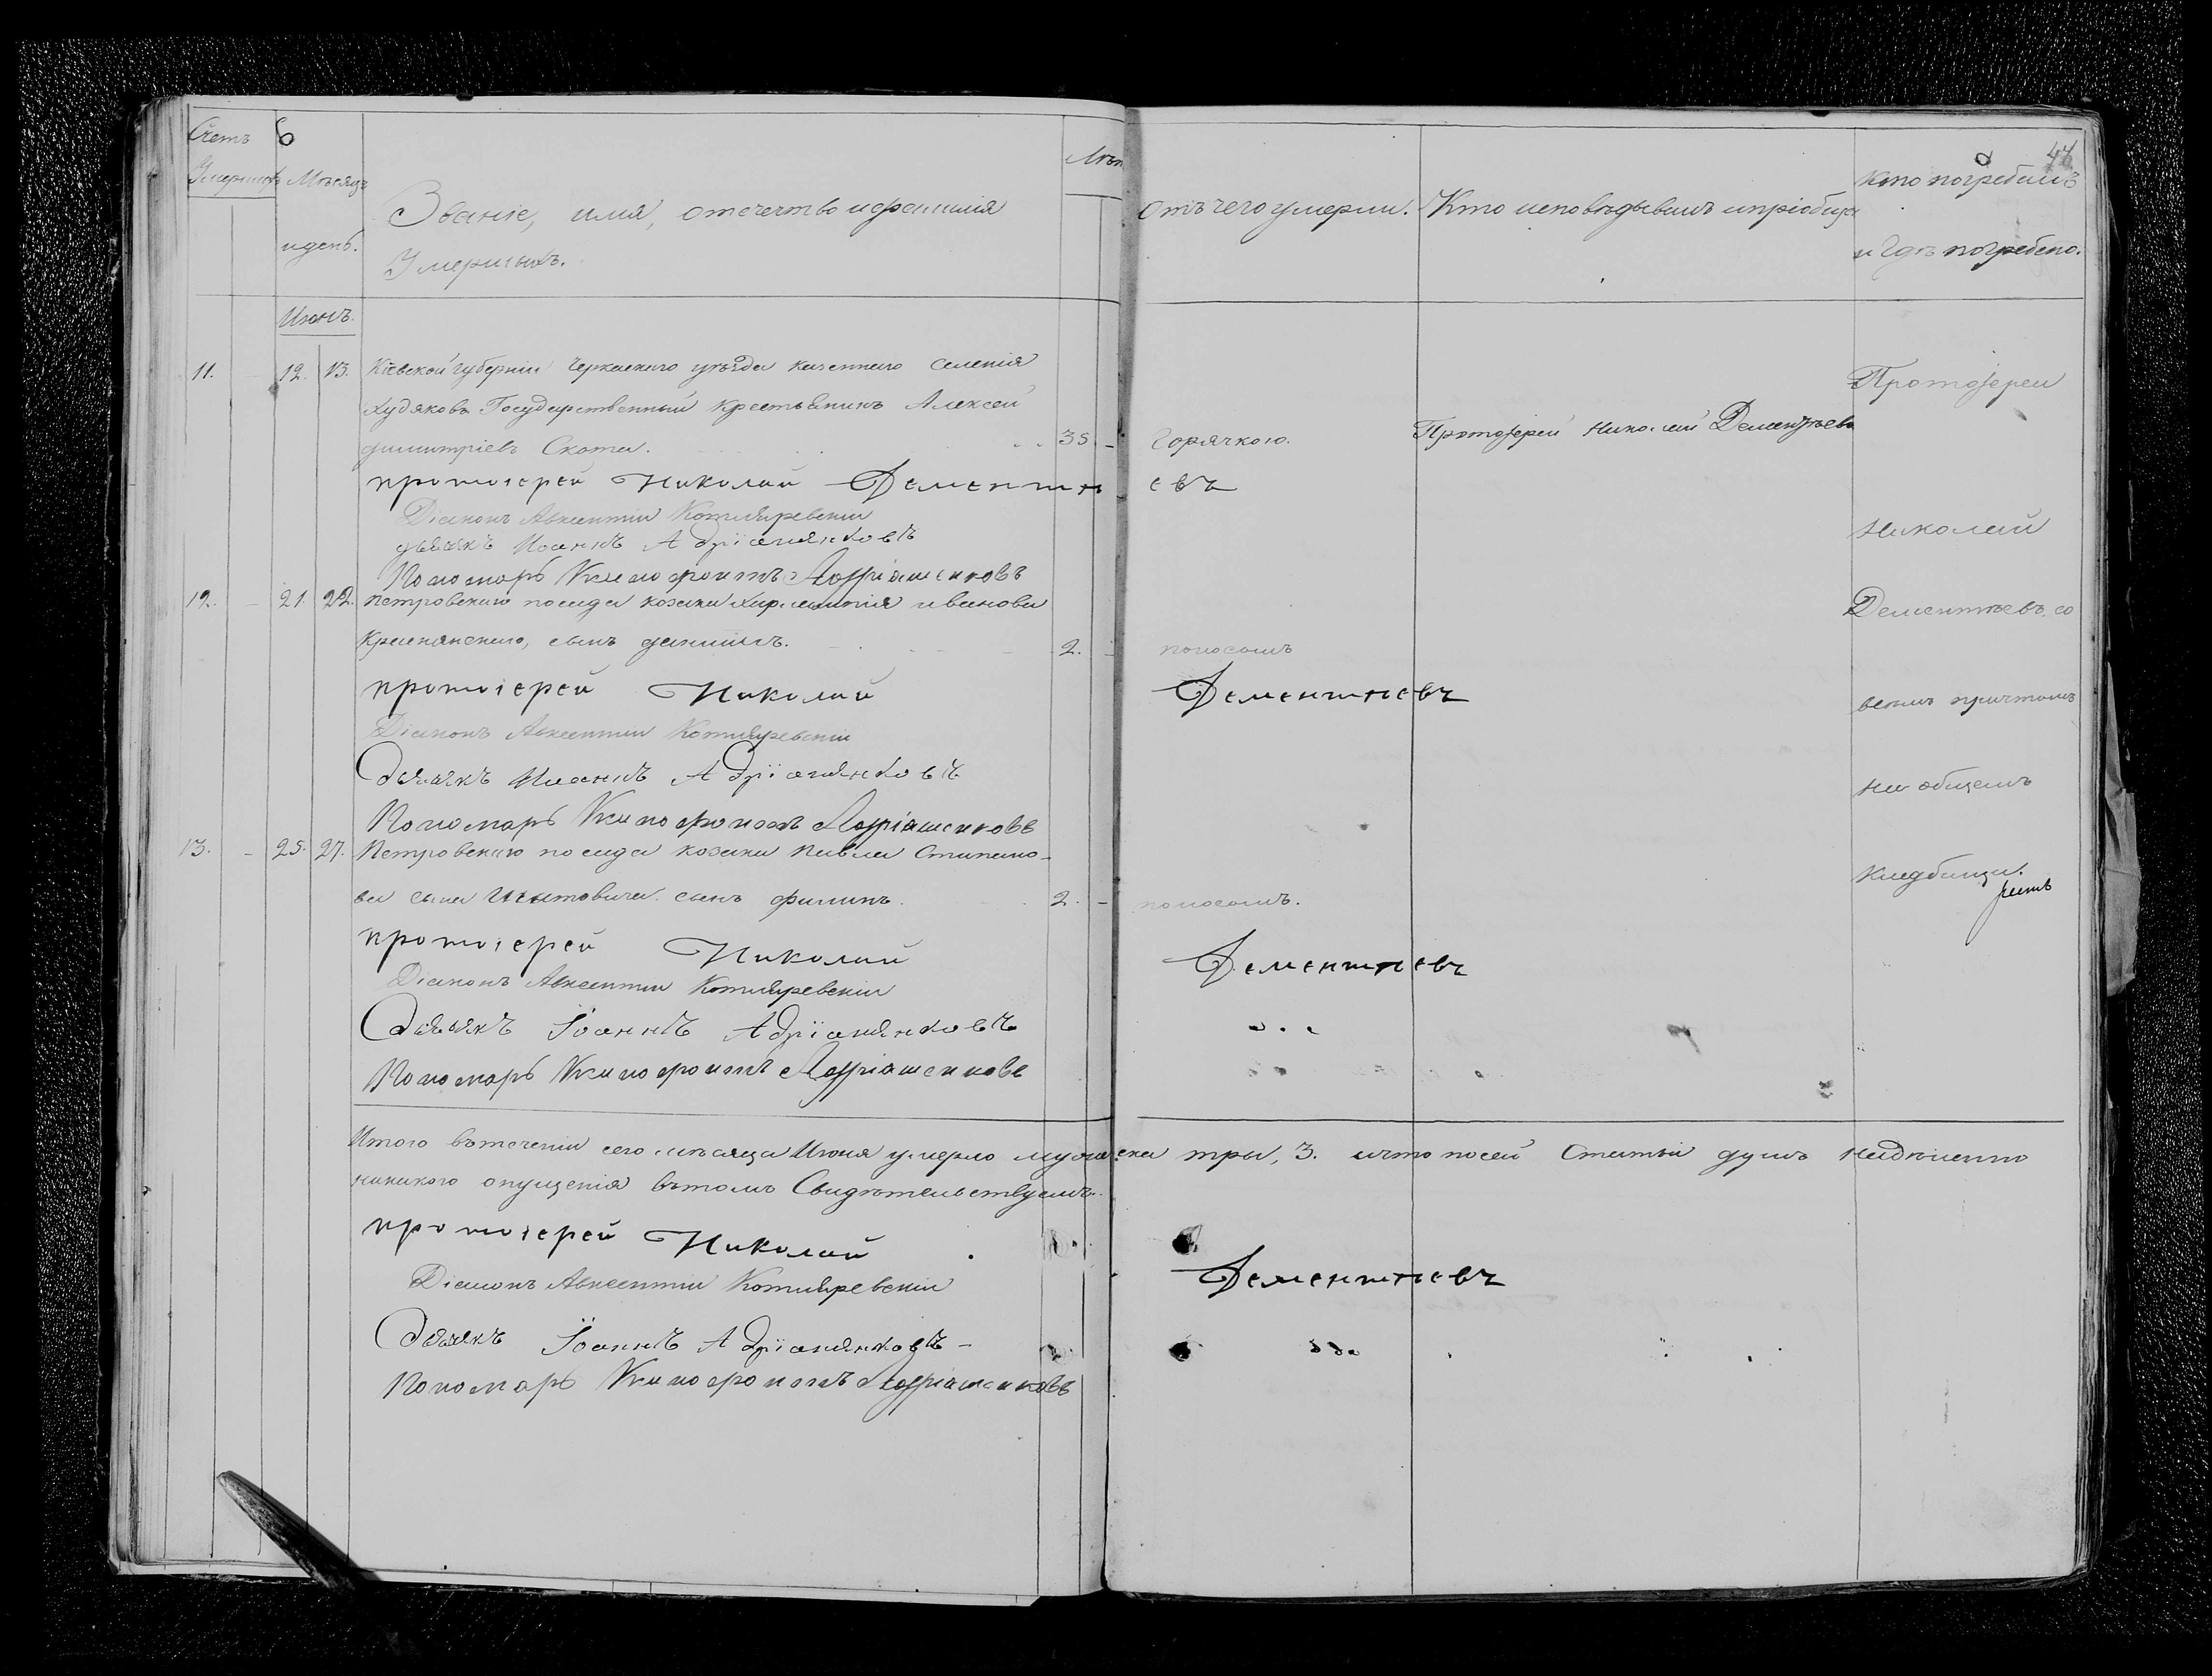 Счетъ
Умершихъ
Мѣсяцъ
и день.
Званіе, имя, отечество и фамилія
Умершихъ.
Лѣт
Отъ чего умерли.
Кто исповѣдывалъ и пріобща
44
Кто погребалъ
и Гдѣ погребено.
Июнь.
11. 12. 13. Кіевской губерніи Черкаскаго уѣзда казеннаго Селенія
Худяковъ Государственный крестьянинъ Алексей
димитріевъ Скота. 35 – Горячкою. Протоіерей Николай Дементьевъ
протоіерей Николай Дементьевъ
Діаконъ Авксентій Котляревскій
дьячкъ Иоаннъ Адріашенковъ
Пономарь Ксенофонтъ Адріашенковъ
12. – 21. 22. Петровскаго посада козака Харлампія иванова
Краснянскаго, сынъ даниилъ. 2. – поносомъ
протоіерей Николай Дементьевъ
Діаконъ Авксентій Котляревскій
Дьячкъ Иоаннъ Адріашенковъ
Пономарь Ксенофонтъ Адріашенковъ
13. – 25. 27. Петровскаго посада козака Павла Стипано-
ва сына сынъ филипъ. 2 – поносомъ.
протоіерей Николай Дементьевъ
Діаконъ Авксентій Котляревскій
Дьячкъ Іоаннъ Адріашенковъ
Пономарь Ксенофонтъ Адріашенковъ
Протоіерей
Николай
Дементьевъ, со
всемъ причтомъ
на общемъ
кладбищи.
Итого втечении сего мѣсяца Июня умерло мужеска три, 3. и что посей Статьи душъ
никакого опущенія втомъ Свидѣтельствуемъ.
протоіерей Николай Дементьевъ
Діаконъ Авксентій Котляревскій
Дьячкъ Іоаннъ Адріашенковъ –
Пономарь Ксенофонтъ Адріашенковъ